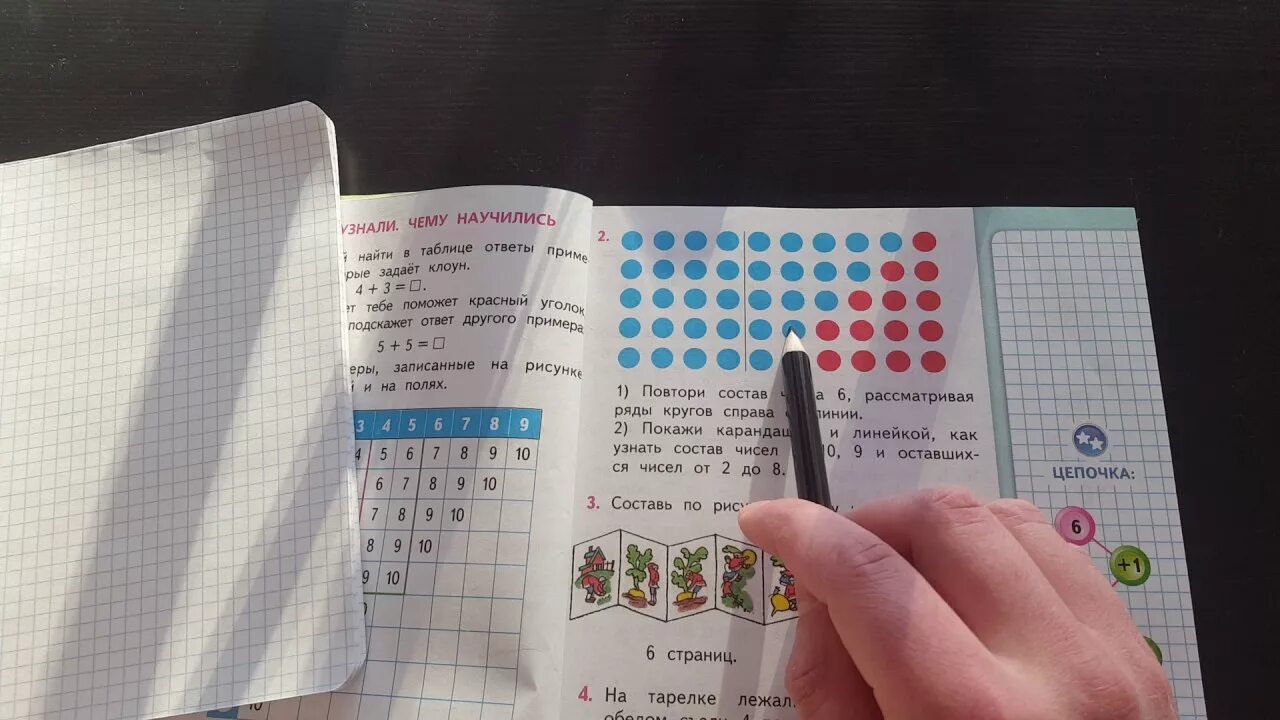 УЗНАЛИ. ЧЕМУ НАУЧИЛИСЬ
найти в таблице ответы
задаёт клоун.
4 + 3 = □.
тебе поможет красный уголок
подскажет ответ другого примера
5 + 5 = □
записанные на рисунке
и на полях.
3 4 5 6 7 8 9
4 5 6 7 8 9 10
6 7 8 9 10
7 8 9 10
8 9 10
9 10
10
2.
1) Повтори состав 6, рассматривая
ряды кругов справа линии.
2) Покажи и линейкой, как
узнать состав чисел 10, 9 и оставших-
ся чисел от 2 до 8.
3. Составь по
6 страниц.
4. На тарелке
4
ЦЕПОЧКА:
6
+1